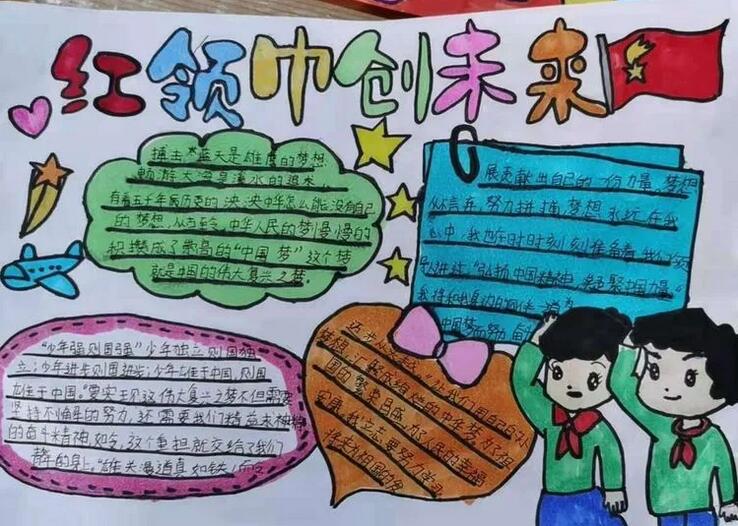 红领巾创未来
搏击蓝天是雄鹰的梦想
畅游大海是溪水的追求
有着五千年
历史的泱泱中华怎么能没有自己
的梦想,从古至今,中华人民的梦慢慢的
积攒成了崇高的“中国梦”这个梦
就是中国的伟大复兴之梦。
展贡献出自己的一份力量,梦想
努力拼搏,梦想永远在我
心中,我也在时时刻刻准备着,我们
“弘扬中国精神,凝聚中国力量。”
我将和我身边的伙伴一道为
中国梦而努力奋
“少年强则国强”少年独立则国独
立;少年进步则国进步;少年雄于中国,则国
雄于中国。要实现这伟大复兴之梦不但需要
坚持不懈的努力,还需要我们精益求精
的奋斗精神,如今,这个重担就交给了我们
身上。“雄关漫道真如铁,而今
让我们用自己的
梦想,汇聚成绚烂的中华梦,为了祖
国的繁荣昌盛,为了人民的幸福
安康,我立志要努力学习
将来为祖国的